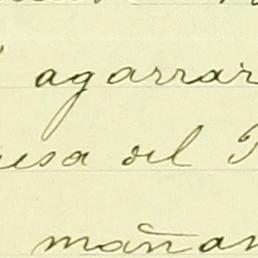 agarrar
esa del
mañan